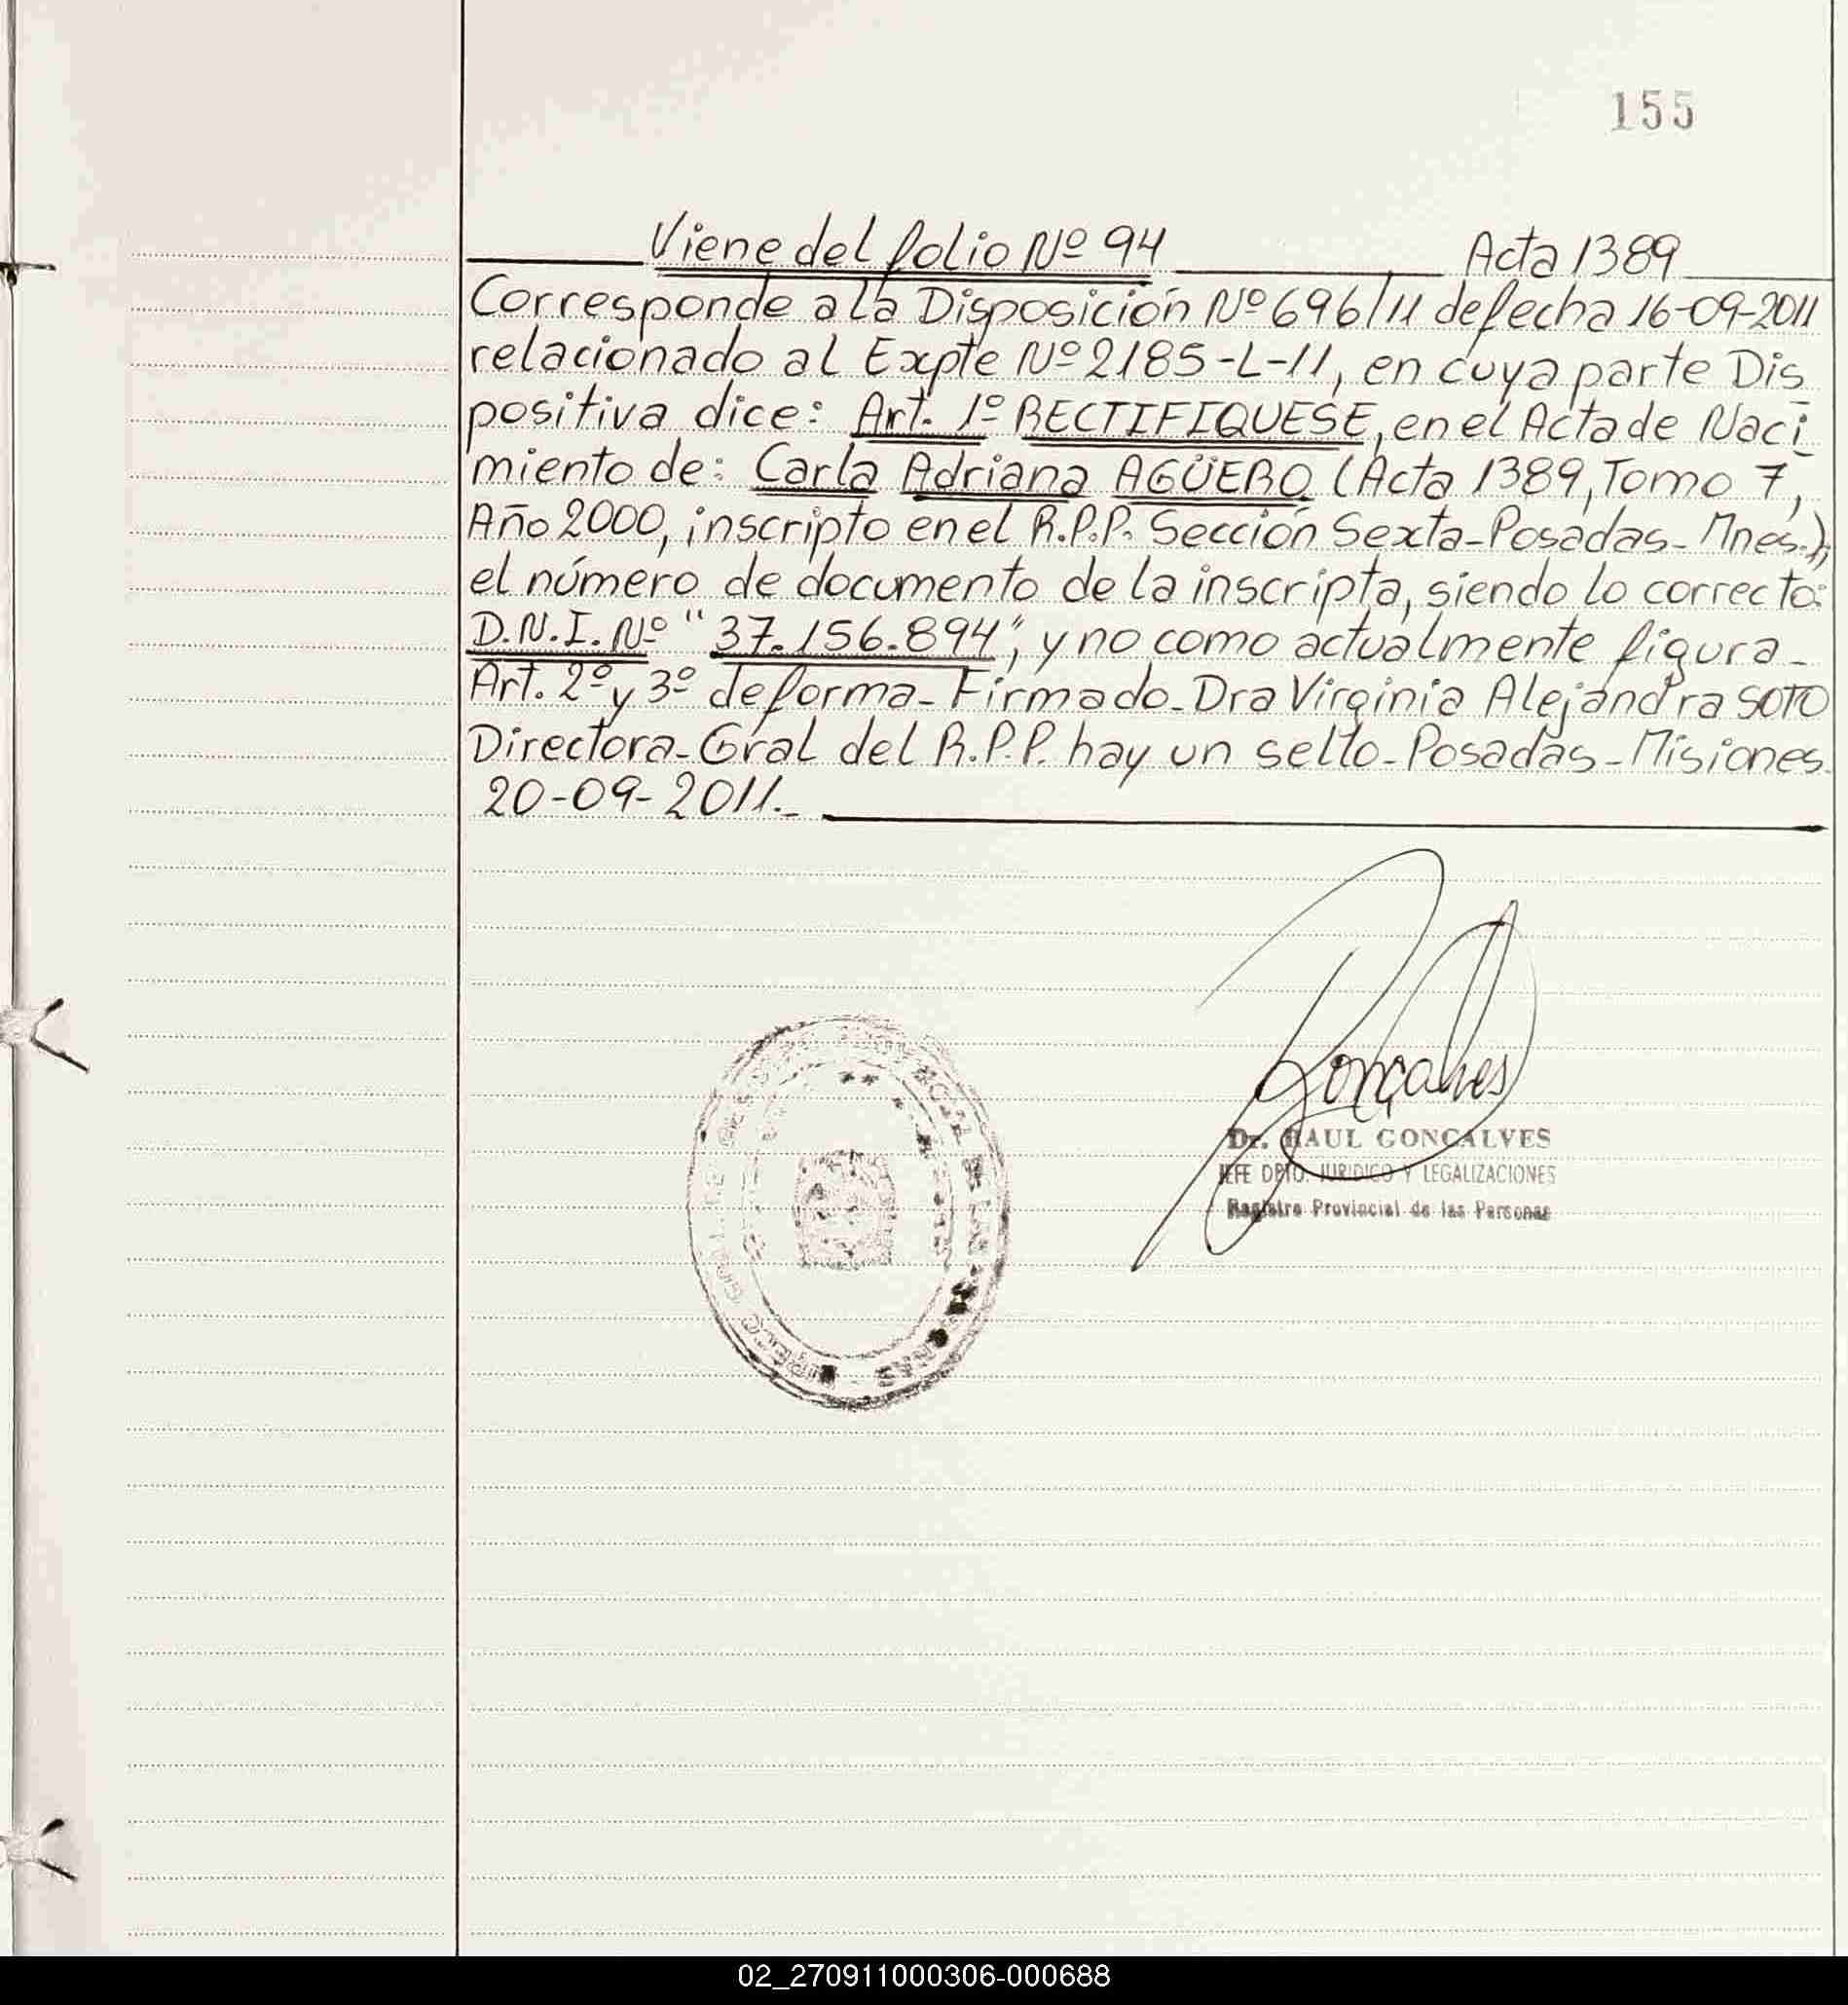 155
Viene del folio Nº 94 Acta 1389
Corresponde a la Disposición Nº 696/11 de fecha 16-09-2011
relacionado al Expte Nº 2185-L-11, en cuya parte Dis
positiva dice: Art. 1º RECTIFIQUESE, en el Acta de Naci
miento de: Carla Adriana AGÜERO (Acta 1389, Tomo 7,
Año 2000, inscripto en el R.P.P. Sección Sexta-Posadas-Mnes.),
el número de documento de la inscripta, siendo lo correcto:
D.N.I. Nº "37.156.894", y no como actualmente figura-
Art. 2º y 3º de forma-Firmado-Dra Virginia Alejandra SOTO
Directora-Gral del R.P.P. hay un sello-Posadas-Misiones
20-09-2011.-
Gonçalves
Dr. RAUL GONCALVES
JEFE DPTO. JURIDICO Y LEGALIZACIONES
Registro Provincial de las Personas
02_270911000306-000688